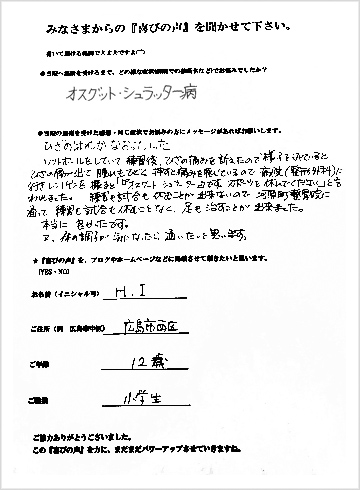 みなさまからの『喜びの声』を聞かせて下さい。
書いて頂ける範囲で大丈夫ですよ(^^)
●当院へ施術を受けるまで、どの様な症状(病院での診断名など)でお悩みでしたか?
オスグット・シュラッター病
●当院の施術を受けた感想・同じ症状でお悩みの方にメッセージがあればお願いします。
ひざの
ソフトボールをしていて練習後、ひざの痛みを訴えたので様子をみていると
ひざの骨が出て腫れもひどく
行きレントゲンを撮ると「オスグットシュラッター病です。スポーツを休んでください」と言
われました。練習も試合も休むことが出来ないので河原町整骨院に
通って練習も試合も休むことなく、足も治すことが出来ました。
本当に
又、体の調子が
★『喜びの声』を、ブログやホームページなどに掲載させて頂きたいと思います。
(YES・NO)
お名前(イニシャル可) H.I
ご住所(例 広島市中区) 広島市西区
ご年齢 12歳
ご職業 小学生
ご協力ありがとうございました。
この『喜びの声』を力に、まだまだパワーアップさせていきますね。